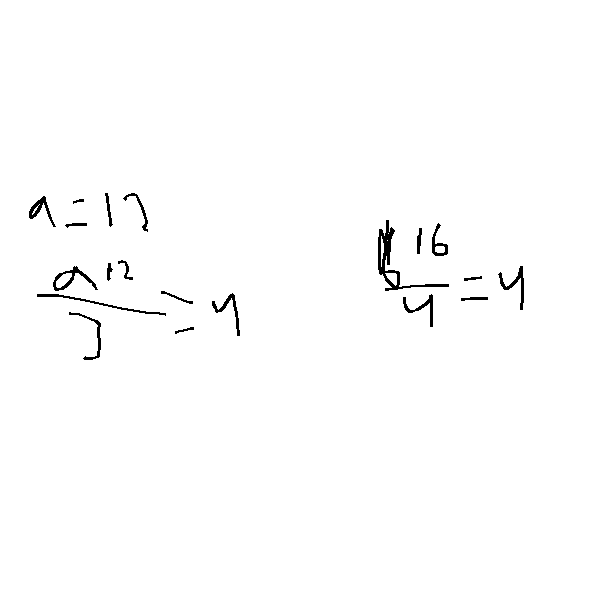 a = 12
a 12
3
= 4
b 16
4
= 4